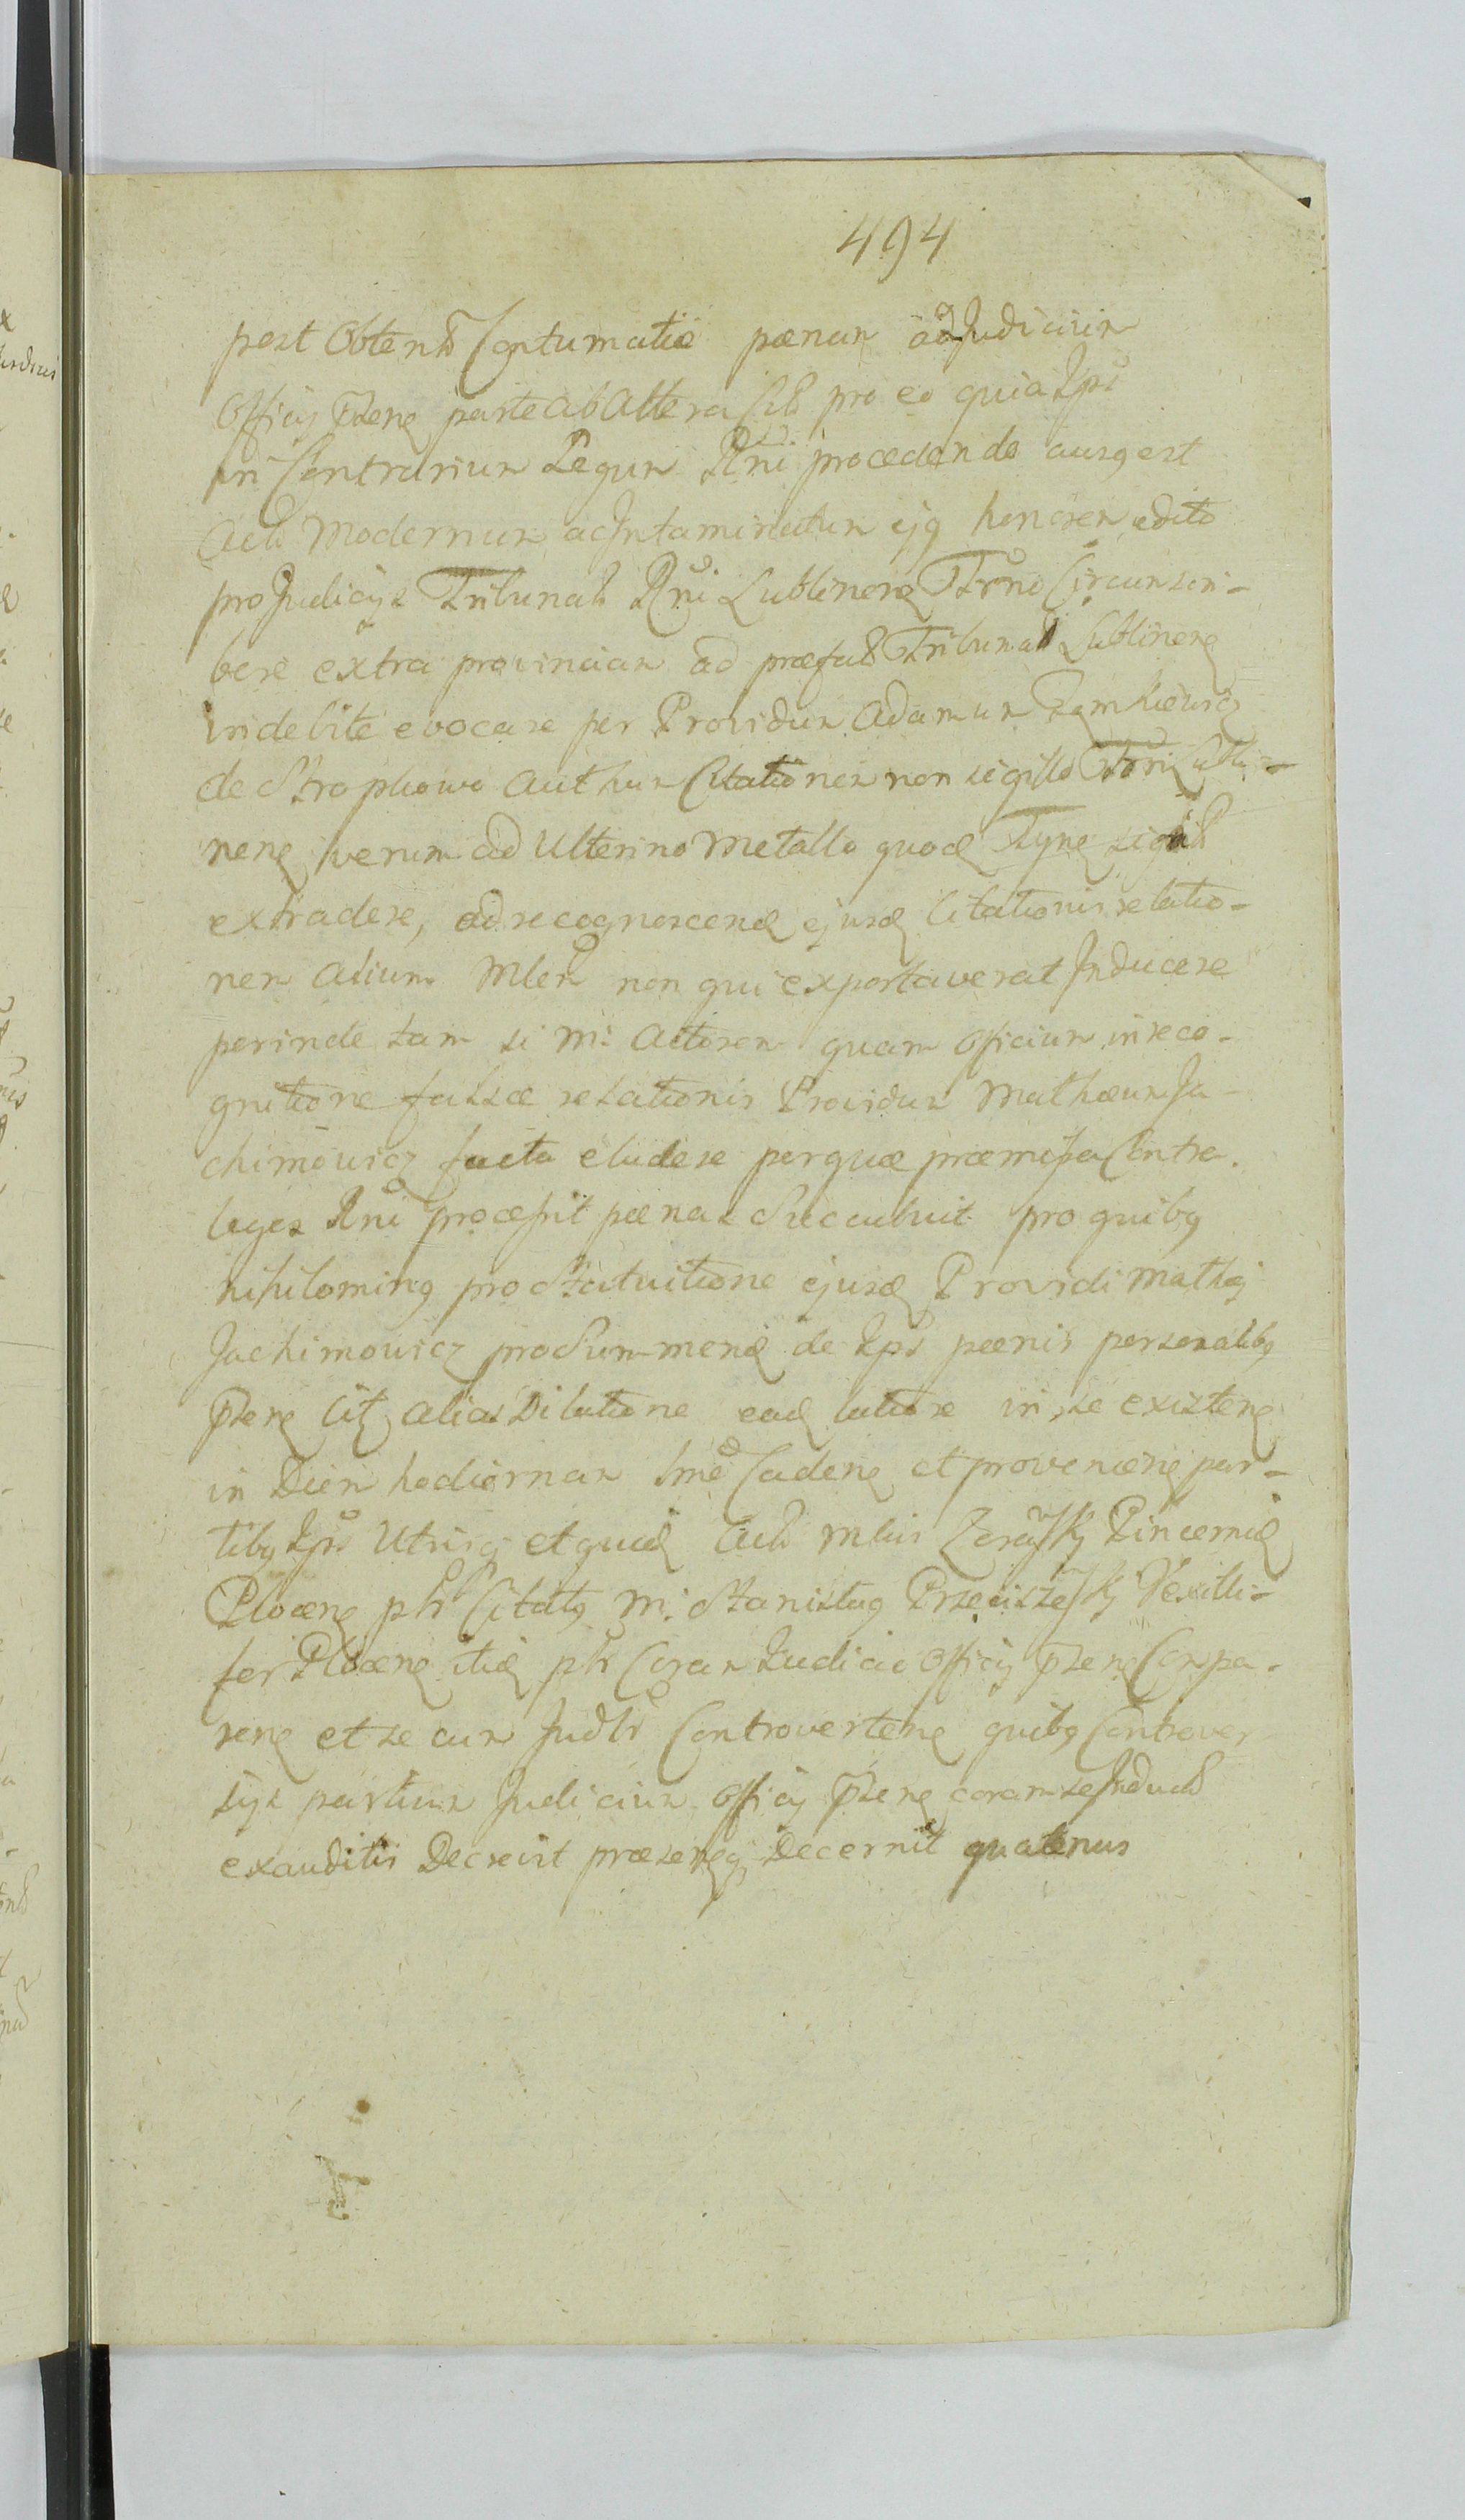 494
post Obtent Contumatiæ pænam ad Judicium
Officÿ psens parte ab Altera Cit pro eo quia Ips
in Contrarium Legum Rni procedendo ausq est
Act Modernum ac Intaminatum ejq honorem, adito
pro Judicijs Tribunalis Rni Lublinens Trno Circumscri-
bere extra provinciam ad præfat Tribunal Lublinens
indebite evocare per Providum Adamum
de Stropkowo Authum Citationem non sigillo Trni Lubli-
nens verum adulterino metallo quod Tyne sigill
extradere, ad recognoscend ejusd Citationis relatio-
nem alium Mlem non qui exportaverat Inducere
perinde tam se M: Actorem quam officium in reco-
gnitione falsæ relationis Providum Mathæum Ja-
chimowicz facta eludere per quæ præmissa Contra
leges Rni processit pænas Succubuit pro quibq
nihilominq pro Statuitione ejusd Providi Mathæj
Jachimowicz pro Summend de Ips pænis personalibq
psens Cit alias Dilatione ead latiore in se existens
in Diem hodiernam Cadens et proveniens par-
tibq Ips Utrisq et quid Act Mlis Pincernæ
Plocens pls Citatq M: Stanislaq Vexilli-
fer Plocens itid pls Coram Judicio Officÿ psens Compa-
rens et secum Judlr Controvertens quibq Controver
sÿs partium Judicium Officÿ psens coram se Induct
exauditis Decrevit præsensq Decernit quatenus